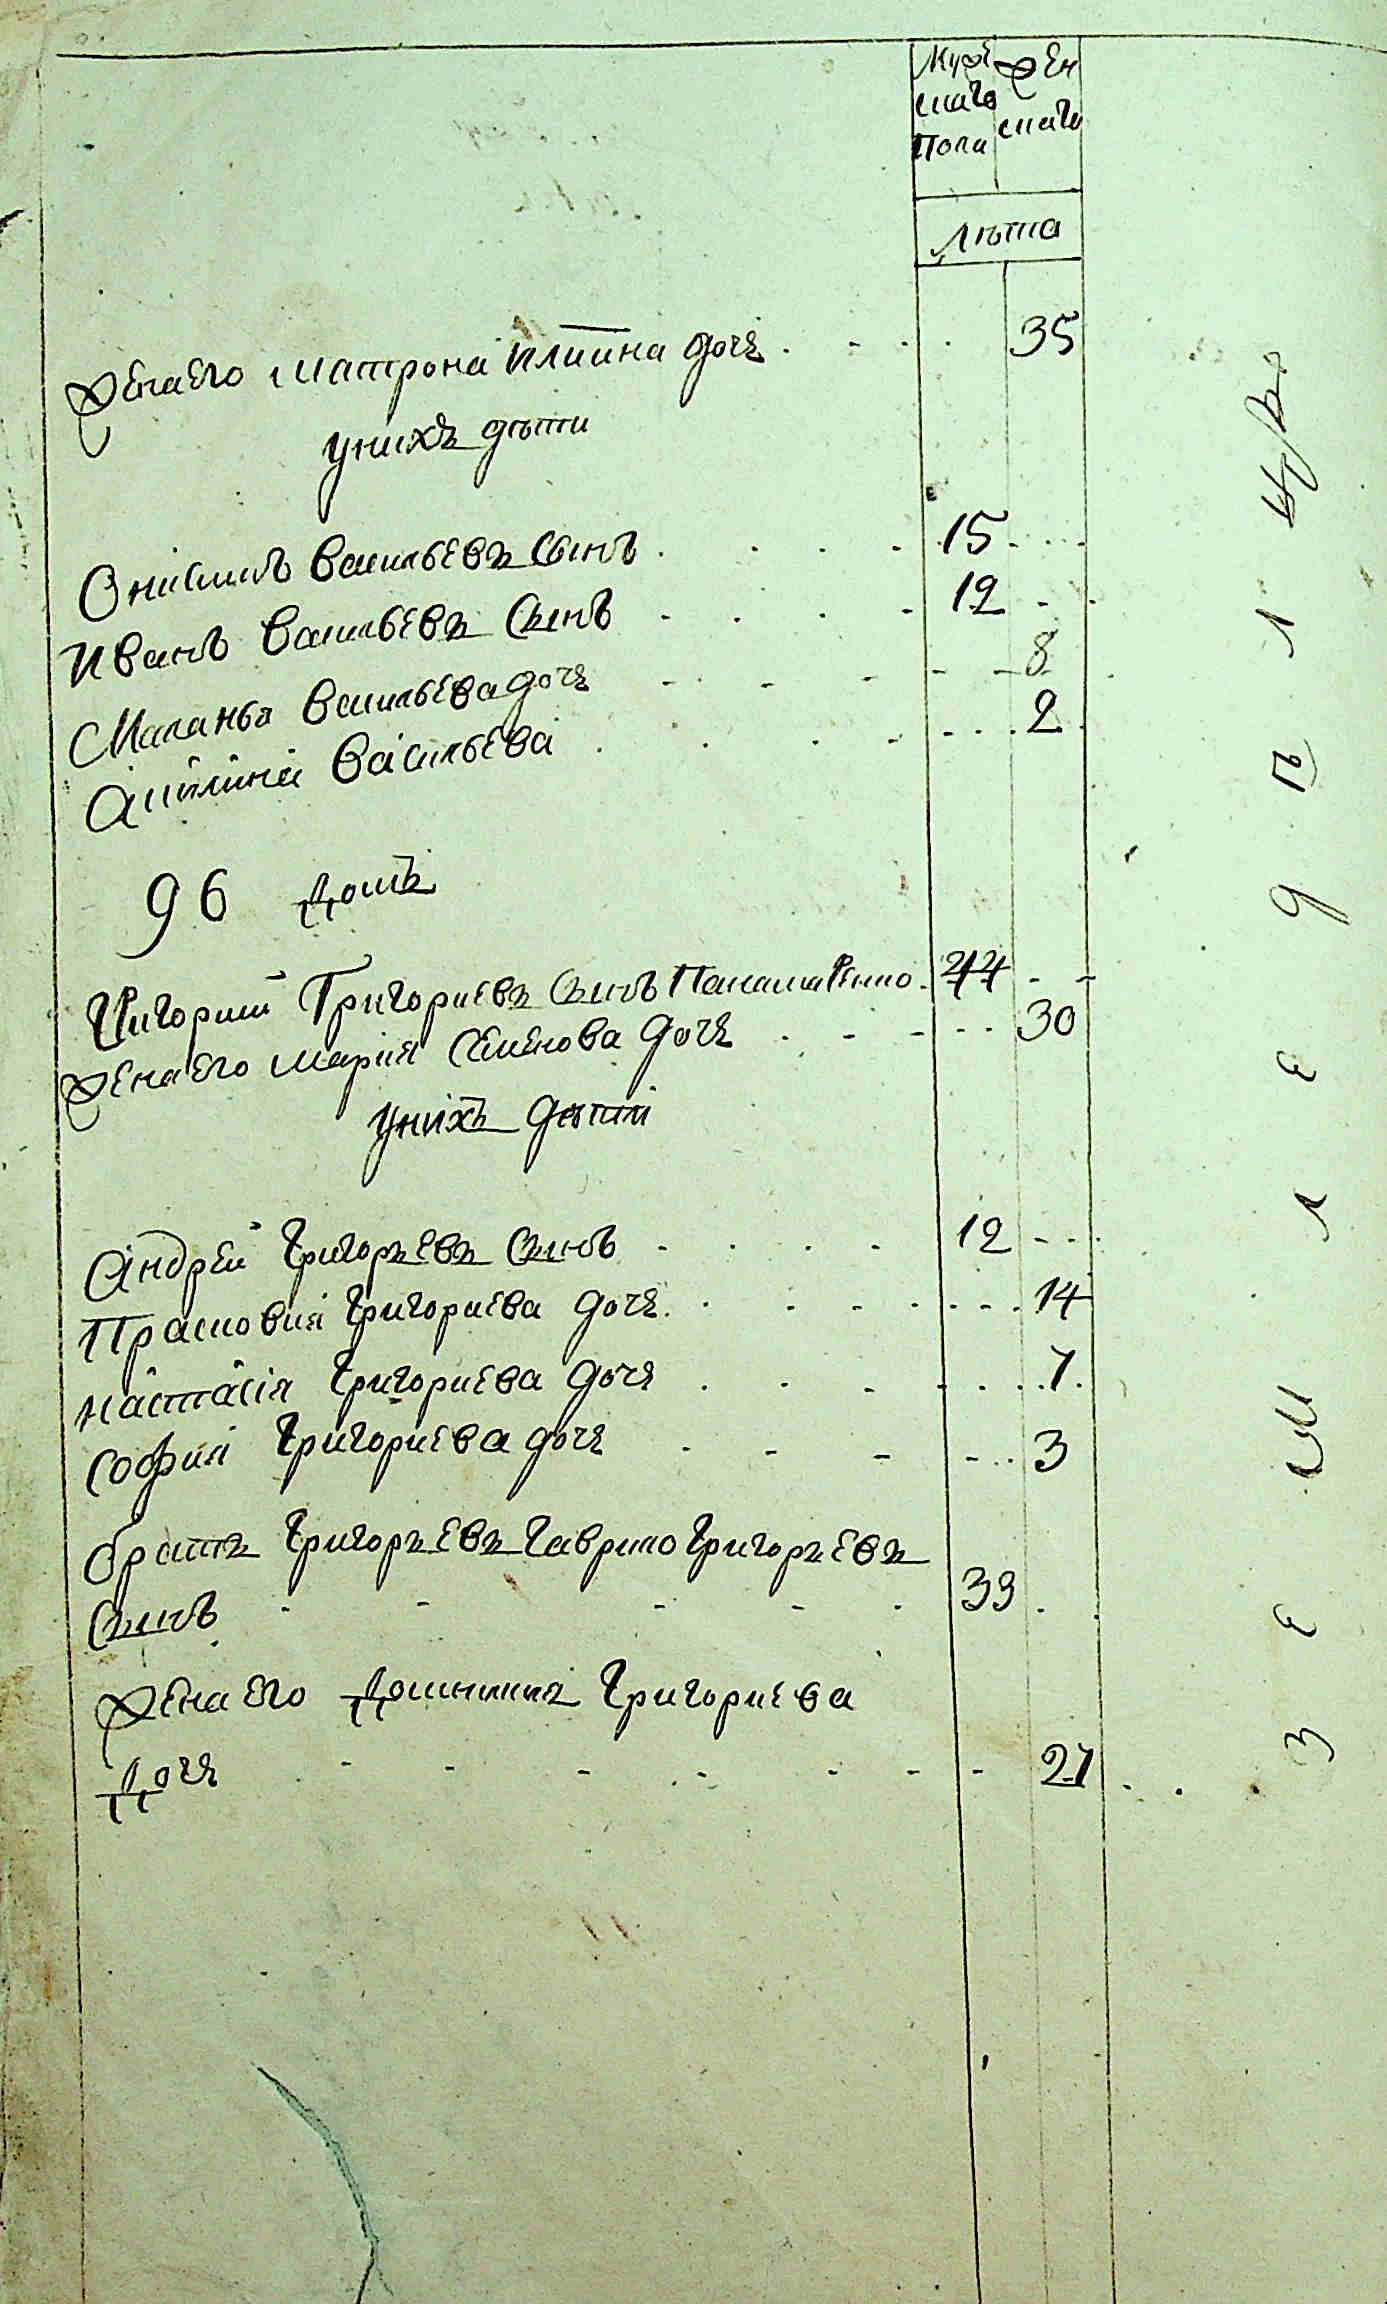 Муже Жен
скаго скаго
Пола
лѣта
Жена его Матрона дочь 35
у нихъ дѣти
Онисимъ Васильевъ Сынъ 15
Иванъ Васильевъ Сынъ 12
Маланья Васильева дочь 8
Акилина Васильева 2
96 Домъ
Григорий Григориевъ Сынъ 44
Жена его Мария Семенова дочь 30
у нихъ дѣти
Андрей Григорьевъ Сынъ 12
Прасковия Григориева дочь 14
Настасія Григориева дочь 7
София Григориева дочь 3
братъ Григорьевъ Гаврило Григорьевъ
Сынъ 39
Жена его Домникия Григориева
Дочь 27
З е м л е д ѣ л